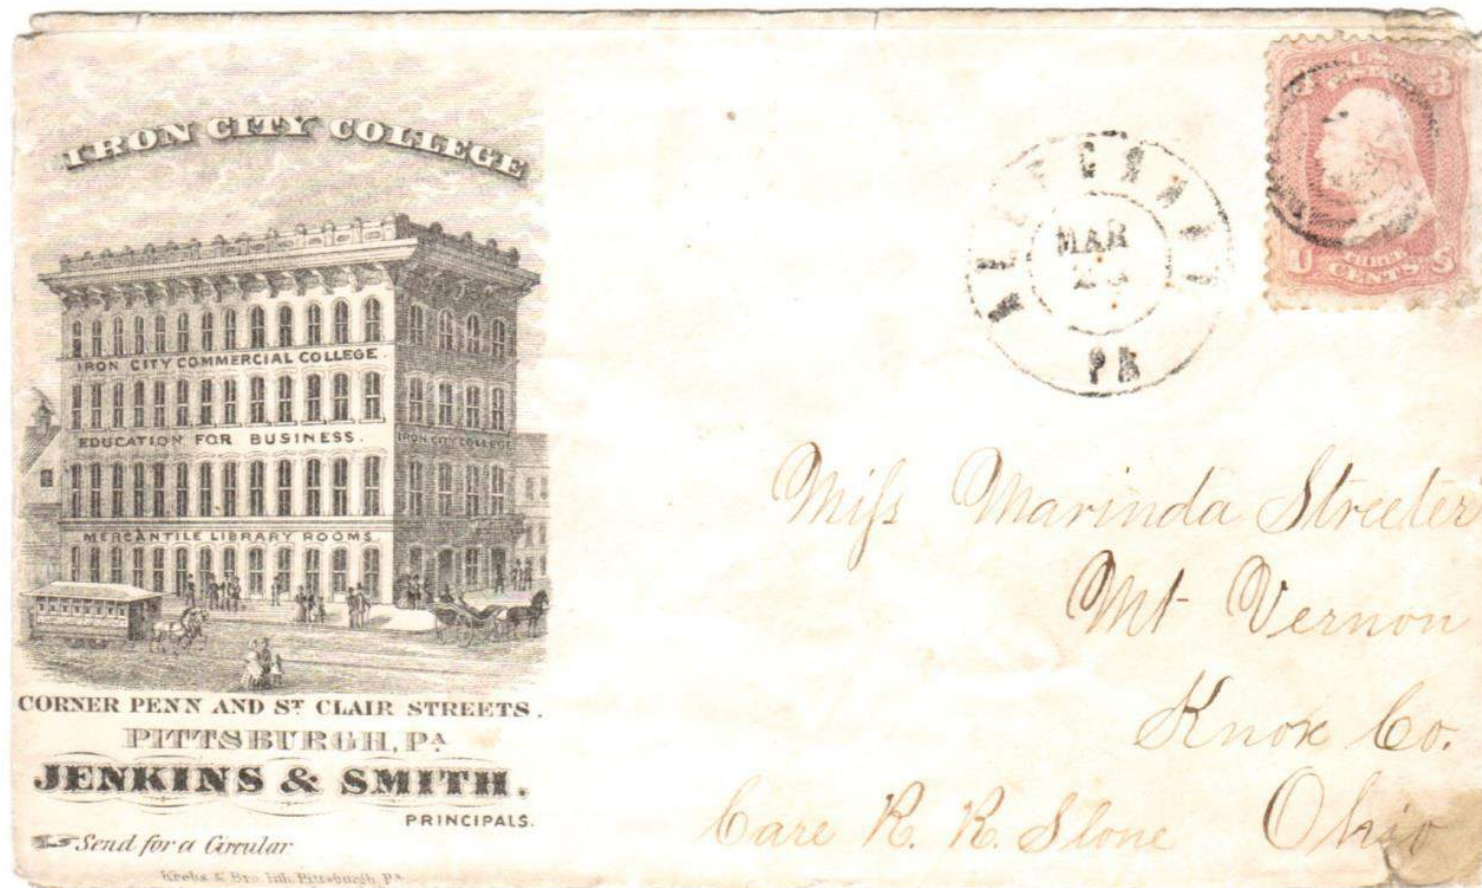 IRON CITY COLLEGE
IRON CITY COMMERCIAL COLLEGE.
EDUCATION FOR BUSINESS.
IRON CITY COLLEGE
MERCANTILE LIBRARY ROOMS.
CORNER PENN AND ST CLAIR STREETS.
PITTSBURGH, PA
JENKINS & SMITH.
PRINCIPALS.
Send for a Circular
Krebs & Bro. Lith. Pittsburgh, Pa
ALLEGHENY
MAR
PA
U.S.
POSTAGE
3
U THREE CENTS S
Miss Marinda Streeter
Mt Vernon
Knox Co.
Ohio
Care R. R. Slone